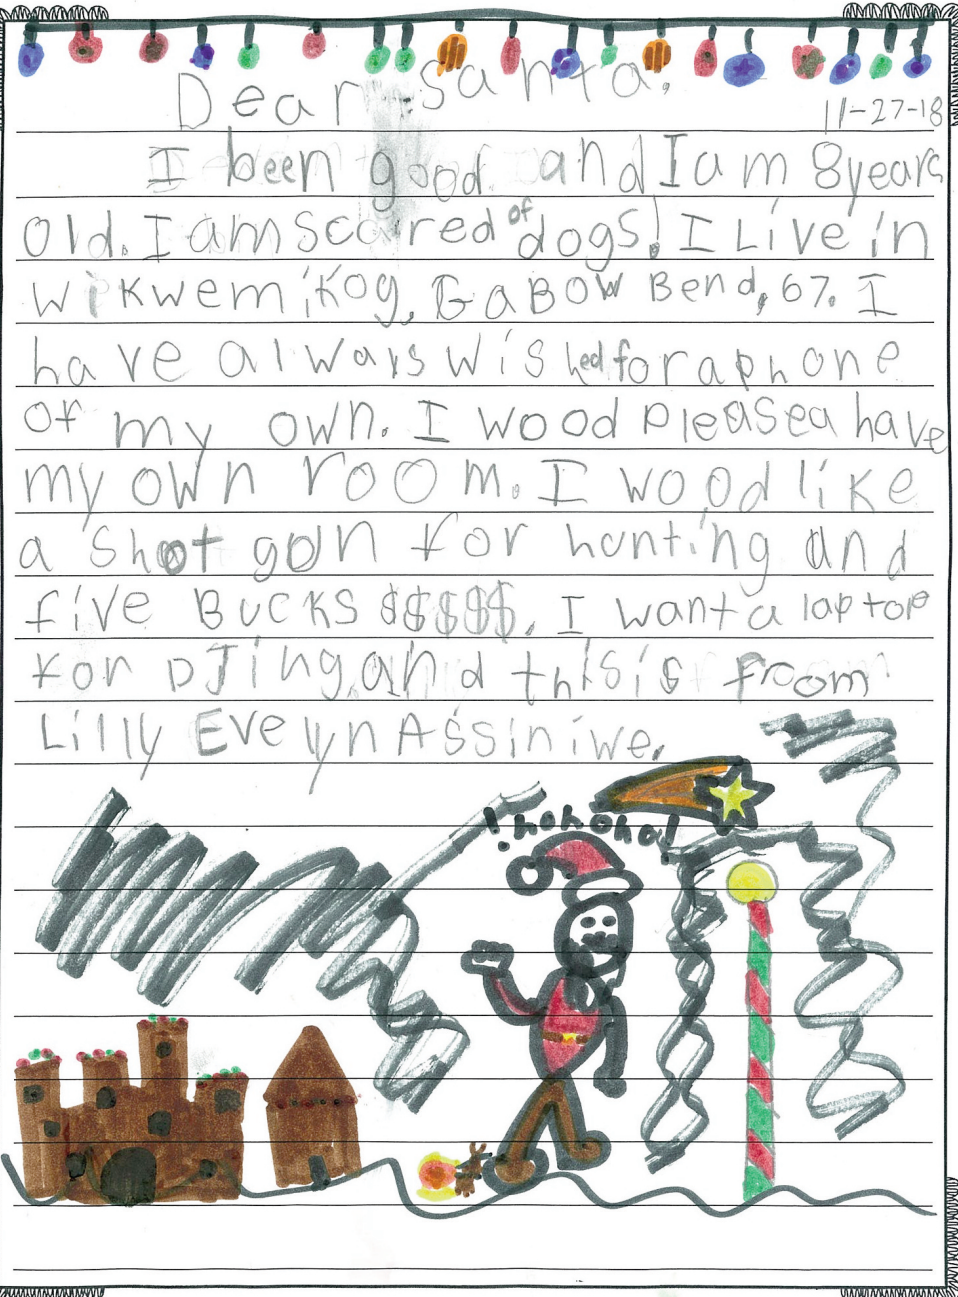 Dear Santa,
11-27-18
I been good and I am 8 years
old. I am scared of dogs! I Live in
wikwemikog, GaBOW Bend, 67. I
have always wished for a phone
of my own. I wood pleasea have
my own room. I wood like
a shot gun for hunting and
five BUCKS $$$$$. I want a laptop
for DJing, and this is from
Lilly Evelyn Assiniwe.
! hohoho!